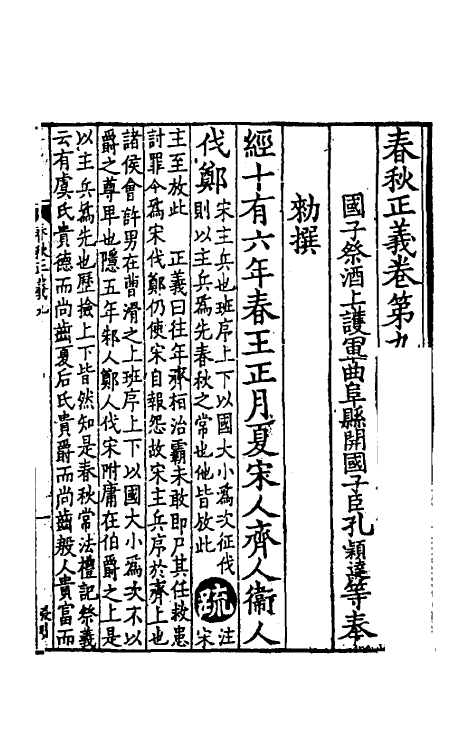 春秋正義卷第九
國子祭酒上護軍曲阜縣開國子臣孔穎達等奉
勑撰
經十有六年春王正月夏宋人齊人衞人
伐鄭
宋主兵也班序上下以國大小爲次征伐
則以主兵爲先春秋之常也他皆放此
疏
注
宋
主至放此 正義曰往年齊桓治霸未敢即尸其任救患
討罪今爲宋伐鄭仍使宋自報怨故宋主兵序於齊上也
諸侯會許男在曹滑之上班序上下以國大小爲次不以
爵之尊卑也隱五年邾人鄭人伐宋附庸在伯爵之上是
以主兵爲先也歷撿上下皆然知是春秋常法禮記祭義
云有虞氏貴德而尚齒夏后氏貴爵而尚齒殷人貴富而
春秋正義九